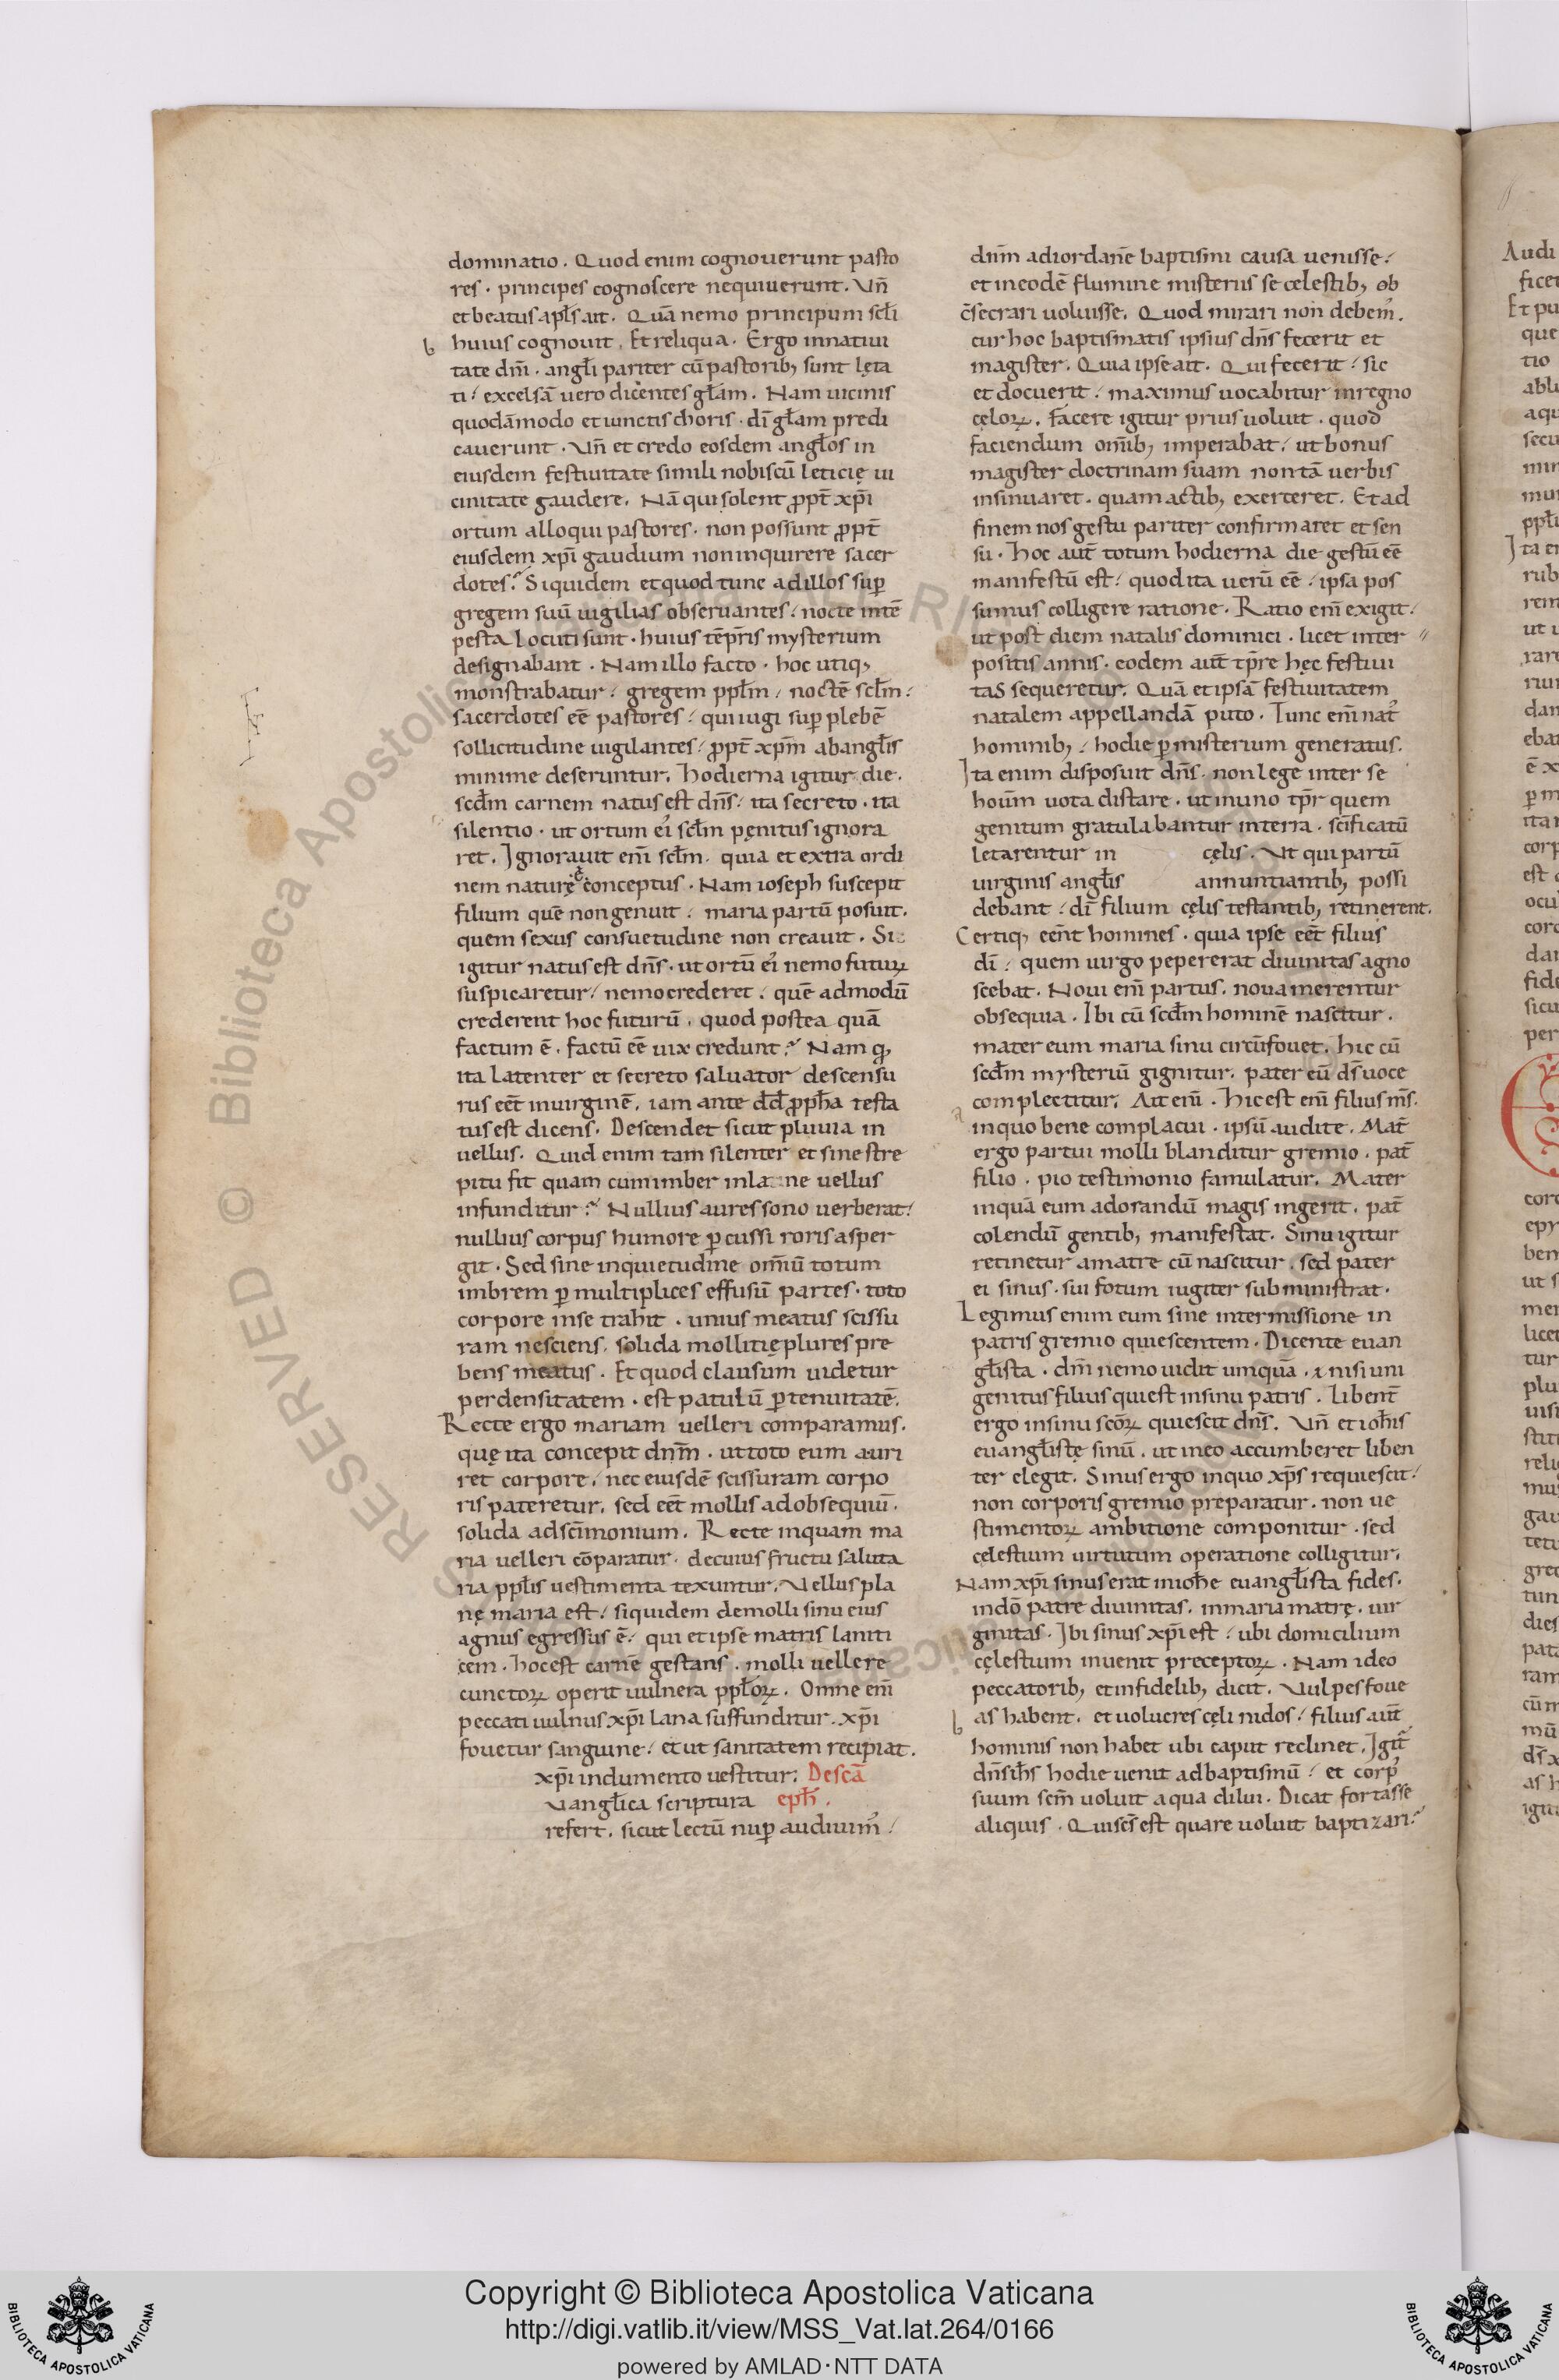 dominatio. Quod enim cognouerunt pasto
res. principes cognoscere nequiuerunt. Vn̄
et beatus apl̄s ait. Quā nemo principum scl̄i
huius cognouit. Et reliqua. Ergo in natiui
tate dn̄i. angl̄i pariter cū pastorib; sunt lęta
ti. excelsā uero dicentes gl̄am. Nam uicinis
quodāmodo et iunctis choris. dī gl̄am predi
cauerunt. Vn̄ et credo eosdem angl̄os in
eiusdem festiuitate simili nobiscū leticię ui
cinitate gaudere. Nā qui solent ꝓpt̄ xp̄i
ortum alloqui pastores. non possunt ꝓpt̄
eiusdem xp̄i gaudium non inquirere sacer
dotes? Siquidem et quod tunc ad illos suꝑ
gregem suū uigilias obseruantes. nocte intē
pesta locuti sunt. huius tēpr̄is mysterium
designabant. Nam illo facto. hoc utiq;
monstrabatur. gregem ppl̄m. noctē scl̄m.
sacerdotes eē pastores. qui iugi suꝑ plebē
sollicitudine uigilantes. ꝓpt̄ xp̄m ab angl̄is
minime deseruntur. Hodierna igitur die.
scd̄m carnem natus est dn̄s. ita secreto. ita
silentio. ut ortum ei᾿ scl̄m pęnitus ignora
ret. Ignorauit eni̅ scl̄m. quia et extra ordi
nem naturę ē conceptus. Nam ioseph suscepit
filium quē non genuit. maria partū posuit.
quem sexus consuetudine non creauit. Si
igitur natus est dn̄s. ut ortū ei᾿ nemo futuꝝ
suspicaretur. nemo crederet. quē admodū
crederent hoc futurū. quod postea quā
factum ē. factū eē uix credunt? Nam qđ
ita latenter et secreto saluator descensu
rus eēt in uirginē. iam ante dd̄ ꝓph̄a testa
tus est dicens. Descendet sicut pluuia in
uellus. Quid enim tam silenter et sine stre
pitu fit quam cum imber in lane uellus
infunditur? Nullius aures sono uerberat.
nullius corpus humore ꝑcussi roris asper
git. Sed sine inquietudine om̄iū totum
imbrem ꝑ multiplices effusū partes. toto
corpore in se trahit. unius meatus scissu
ram nesciens. solida mollitię plures pre
bens meatus. Et quod clausum uidetur
per densitatem. est patulū ꝑ tenuitatē.
Recte ergo mariam uelleri comparamus.
quę ita concepit dnm̄. ut toto eum auri
ret corpore. nec eiusdē scissuram corpo
ris pateretur. sed eēt mollis ad obsequiū.
solida ad scīmonium. Recte inquam ma
ria uelleri cōparatur. de cuius fructu saluta
ria ppl̄is uestimenta texuntur. Vellus pla
nę maria est. siquidem de molli sinu eius
agnus egressus ē. qui et ipse matris laniti
cem. hoc est carnē gestans. molli uellere
cunctoꝝ operit uulnera ppl̄oꝝ. Omne eni̅
peccati uulnus xp̄i lana suffunditur. xp̄i
fouetur sanguine. et ut sanitatem recipiat.
xp̄i indumento uestitur. De scā
Vangl̄ica scriptura eph̄.
refert. sicut lectū nuꝑ audiuim᾿.
dnm̄ ad iordanē baptismi causa uenisse.
et in eodē flumine misteriis se celestib; ob
c̄secrari uoluisse. Quod mirari non debem᾿.
cur hoc baptismatis ipsius dn̄s fecerit et
magister. Quia ipse ait. Qui fecerit. sic
et docuerit. maximus uocabitur in regno
cęloꝝ. facere igitur prius uoluit. quod
faciendum om̄ib; imperabat. ut bonus
magister doctrinam suam non tā uerbis
insinuaret. quam actib; exerceret. Et ad
finem nos gestu pariter confirmaret et sen
su. Hoc aut̄ totum hodierna die gestū eē
manifestū est. quod ita uerū eē. ipsa pos
sumus colligere ratione. Ratio eni̅ exigit.
ut post diem natalis dominici. licet inter
positis annis. eodem aut̄ tp̄re hęc festiui
tas sequeretur. Quā et ipsā festiuitatem
natalem appellandā puto. Tunc eni̅ nat᾿
hominib;. hodie ꝑ misterium generatus.
Ita enim disposuit dn̄s. non lege inter se
houm̄ uota distare. ut in uno tp̄r quem
genitum gratulabantur in terra. scīficatū
letarentur in cęlis. Vt qui partū
uirginis angl̄is annuntiantib; possi
debant. dī filium cęlis testantib; retinerent.
Certiq; eēnt homines. quia ipse eēt filius
dī. quem uirgo pepererat diuinitas agno
scebat. Noui eni̅ partus. noua merentur
obsequia. Ibi cū scd̄m hominē nascitur.
mater eum maria sinu circūfouet. hic cū
scd̄m mysteriū gignitur. pater eū ds̄ uoce
complectitur. Ait eni̅. Hic est eni̅ filius m̄s.
in quo bene complacui. ipsū audite. Mat̄
ergo partui molli blanditur gremio. pat̄
filio. pio testimonio famulatur. Mater
inquā eum adorandū magis ingerit. pat̄
colendū gentib; manifestat. Sinu igitur
retinetur a matre cū nascitur. sed pater
ei sinus. sui fotum iugiter subministrat.
Legimus enim eum sine intermissione in
patris gremio quiescentem. Dicente euan
gl̄ista. dm̄ nemo uidit umquā. nisi uni
genitus filius qui est in sinu patris. Libent̄
ergo in sinu scōꝝ quiescit dn̄s. Vn̄ et ioh̄is
euangl̄istę sinū. ut in eo accumberet liben
ter elegit. Sinus ergo in quo xp̄s requiescit.
non corporis gremio preparatur. non ue
stimentoꝝ ambitione componitur. sed
cęlestium uirtutum operatione colligitur.
Nam xp̄i sinus erat in ioh̄e euangl̄ista fides.
in dō patre diuinitas. in maria matrę. uir
ginitas. Ibi sinus xp̄i est. ubi domicilium
cęlestium inuenit preceptoꝝ. Nam ideo
peccatorib; et infidelib; dicit. Vulpes foue
as habent. et uolucres cęli nidos. filius aut̄
hominis non habet ubi caput reclinet. Igit̄
dn̄s ih̄s hodie uenit ad baptismū. et corp᾿
suum scm̄ uoluit aqua dilui. Dicat fortasse
aliquis. Qui scs̄ est quare uoluit baptizari?
Copyright © Biblioteca Apostolica Vaticana
http://digi.vatlib.it/view/MSS_Vat.lat.264/0166
powered by AMLAD·NTT DATA